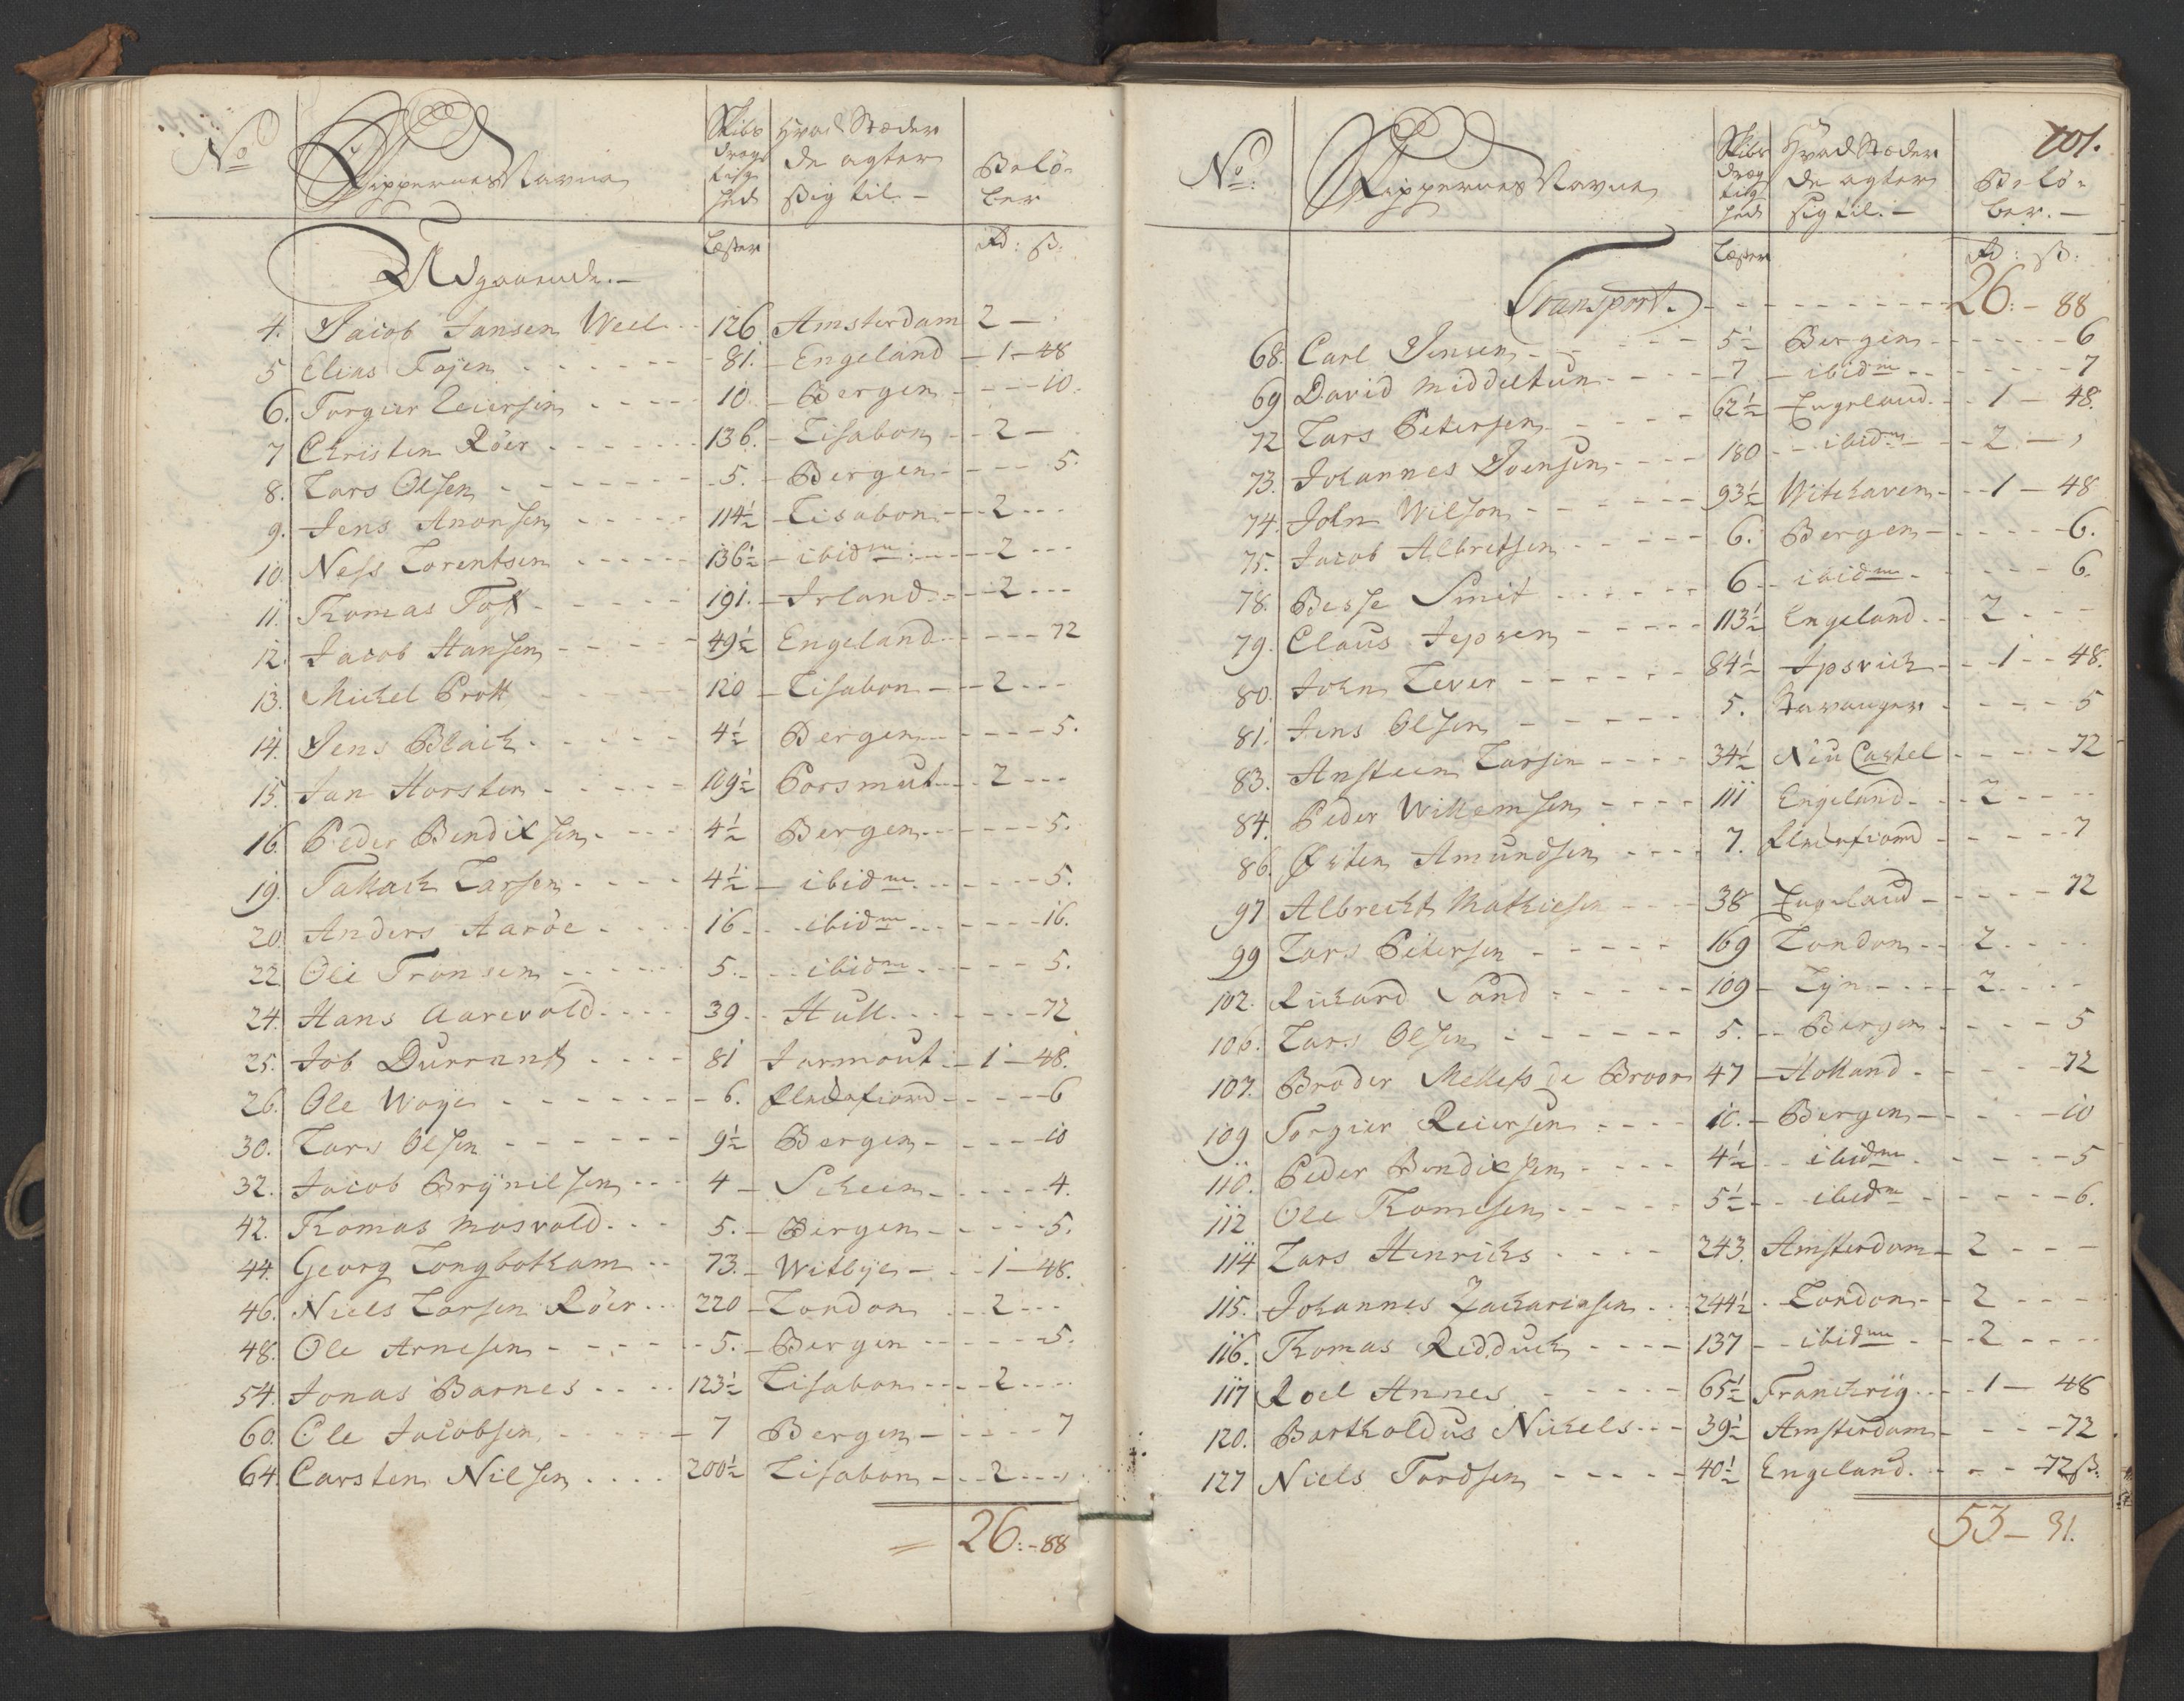 No
Skippernes Navne
Skibs Drægtighed
Hvad Stæder de agter sig til -
Belø-ber
Læster
Rd: ß:
Udgaaende. -
4. Jacob Jansen Weel - - 126 Amsterdam 2 -
5 Elias Tøjen - - - - - 81. - Engeland - 1 - 48
6. Torgier Reiersen - - - - 10 - Bergen - - - - 10.
7 Christen Röer - - - - - 136. - Lisabon - - 2 -
8. Lars Olsen - - - - - - 5. - Bergen - - - - 5.
9. Jens Anonsen - - - - - 114½ - Lisabon - - 2 - - -
10 Ness Lorentsen - - - - - 136½ - ibidm - - - 2 - - -
11. Thomas Toft - - - - - 191. - Irland - - - 2 - - -
12. Jacob Hansen - - - - - 49½ Engeland - - - - 72
13. Michel Prott - - - - 120 - Lisabon - - 2 - - -
14. Jens Blach - - - - - 4½ Bergen - - - - - 5.
15. Jan Horsten - - - - - 109½ Porsmut - - 2 - - -
16. Peder Bendixsen - - - - 4½ Bergen - - - - - 5.
19. Tallach Larsen - - - - 4½ - ibidm - - - - - 5.
20. Anders Aaröe - - - - 16 - - ibidm - - - - 16.
22 Ole Tronsen - - - - - 5. - - ibidm - - - - 5.
24. Hans Aarevold - - - - 39. - Hull - - - - - 72
25. Job Durrant - - - - 81 Jarmout - 1 - 48.
26. Ole Woye - - - - - - 6. Flechefiord - - - - 6
30. Lars Olsen - - - - - - 9½ Bergen - - - - 10
32. Jacob Brÿnilsen - - - 4 - Scheen - - - - 4.
42. Thomas Mosvold - - - 5. - Bergen - - - - 5.
44. Georg Longbotham - - 73. - Witbÿe - - 1 - 48.
46. Niels Larsen Röer - - - 220 - London - - 2 - - -
48. Ole Arnesen - - - - - 5. - Bergen - - - - - 5.
54. Jonas Barnes - - - - 123½ Lisabon - - - 2 - - -
60. Ole Jacobsen - - - - - 7 Bergen - - - - 7
64. Carsten Nilsen - - - - 200½ Lisabon - - - 2 - - -
26: - 88
101.
No:
Skippernes Navne
Skibs Drægtighed
Hvad Stæder de agter sig til. -
Belø-ber. -
Læster
Rd: ß:
Transport. - - - - - - - - - 26: - 88
68. Carl Jensen - - - - - 5½ Bergen - - - - - 6
69 David Middeltun - - - - 7 - ibidm - - - - - 7
72 Lars Petersen - - - - - 62½ Engeland - - 1 - 48.
73. Johannes Joensen - - - - 180 - - ibidm - - 2 -
74. John Wilson - - - - - 93½ Withaven - - 1 - 48
75. Jacob Albretsen - - - - - 6. Bergen - - - - - 6.
78. Besse Smit - - - - - - 6 - ibidm - - - - - 6.
79. Claus Jepsen - - - - - 113½ Engeland - - 2 - - -
80. John Lever - - - - - - 84½ Ipsvich - - 1 - - 48.
81. Jens Olsen - - - - - - 5. Stavanger - - - - 5
83. Ansteen Larsen - - - - 34½ Neu Castel - - - - 72
84. Peder Willemsen - - - - 111 Engeland - - 2 - - -
86. Østen Amundsen - - - - 7. Flechefiord - - - - 7
97 Albrecht Mathiesen - - - 38 Engeland - - - - 72
99 Lars Petersen - - - - - 169 London - - 2 - - -
102. Richard Sand - - - - - 109 - Lÿn - - - 2 - - -
106. Lars Olsen - - - - - - 5. - - Bergen - - - - 5
107. Broder Melless de Broor 47 - Holland - - - - 72
109 Torgier Reiersen - - - - 10. - Bergen - - - - 10
110. Peder Bendixsen - - - - 4½ - - ibidm - - - - 5
112 Ole Thomesen - - - - - 5½ - - ibidm - - - - - 6.
114 Lars Henrichs - - - - 243. Amsterdam - 2 - - -
115. Johannes Zachariasen - - 244½ - London - - 2 - - -
116. Thomas Redduch - - - - 137 - - ibidm - - 2 - - -
117 Roel Annes - - - - - 65½ Franchrig - - 1 - 48
120. Bartholdus Nichels - - - 39½ Amsterdam - - - - 72
127 Niels Tordsen - - - - - 40½ Engeland. - - - 72 ß.
53 - 31.